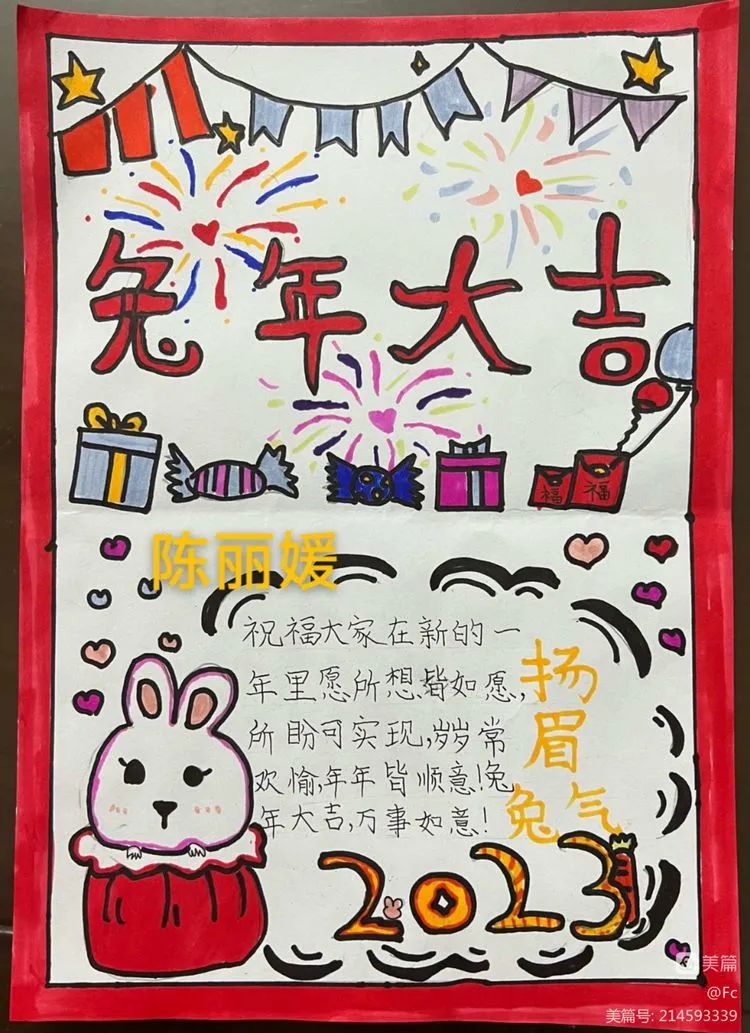 兔年大吉
福 福
陈丽媛
祝福大家在新的一
年里愿所想皆如愿,
所盼可实现,岁岁常
欢愉,年年皆顺意!兔
年大吉,万事如意!
扬
眉
兔气
2023
美篇
@Fc
美篇号: 214593339